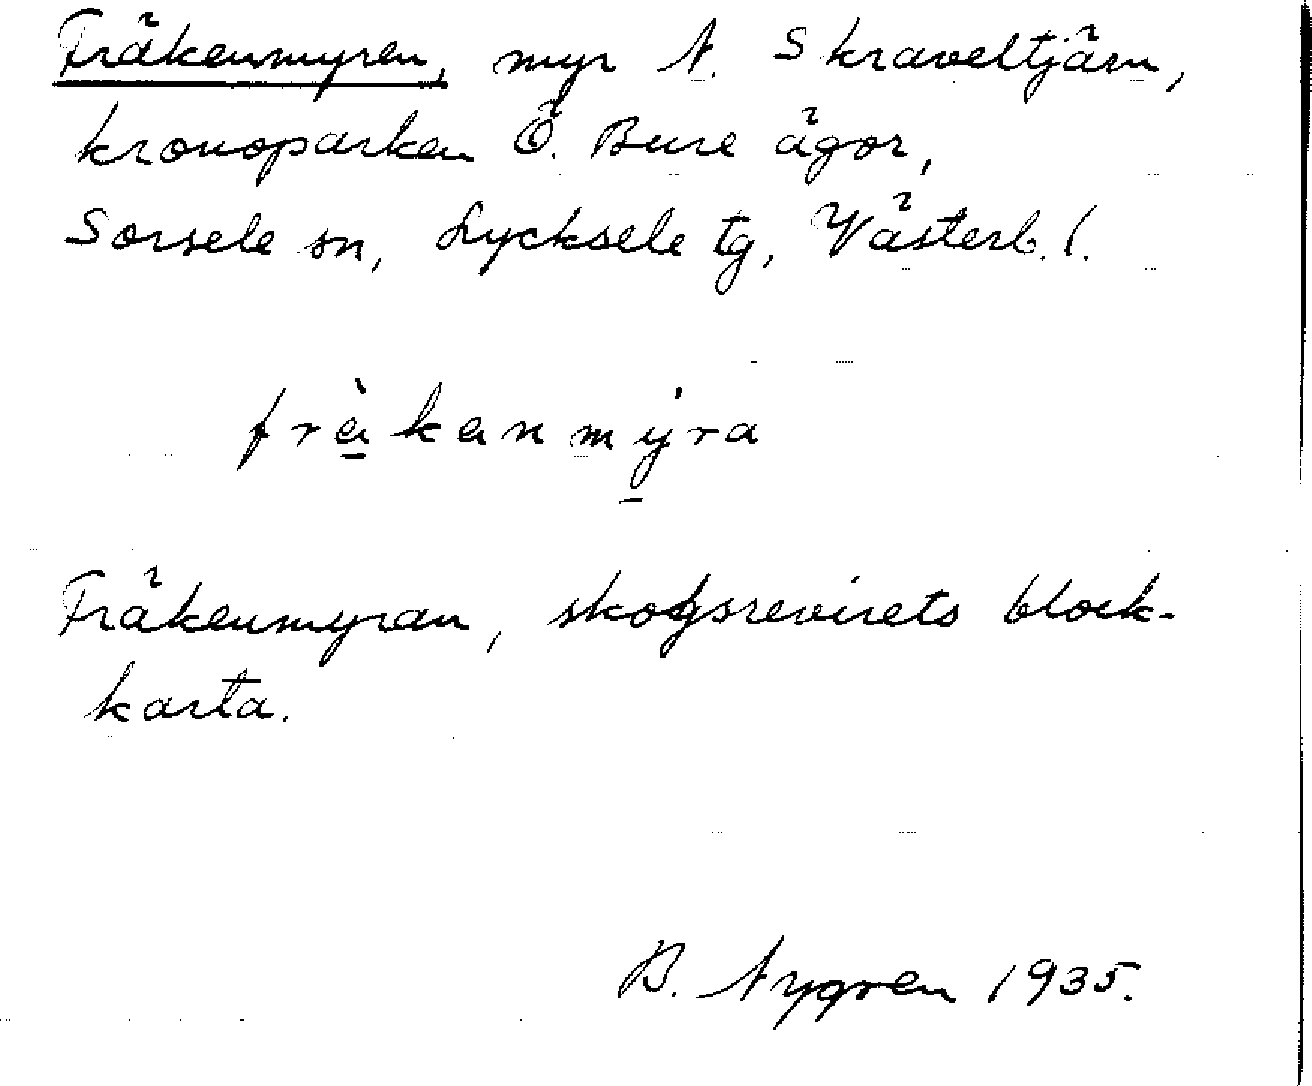 Fräkenmyren, myr N. Skraveltjärn,
kronoparken Ö. Bure ägor,
Sorsele sn, Lycksele tg, Västerb. l.
fràkanmýra
Fräkenmyran, skogsrevirets block-
karta.
B. Nygren 1935.